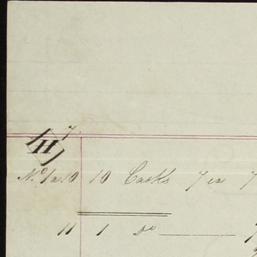 7
H
No 1 a 10 10 Casks 7 in 7
11 1 do 7